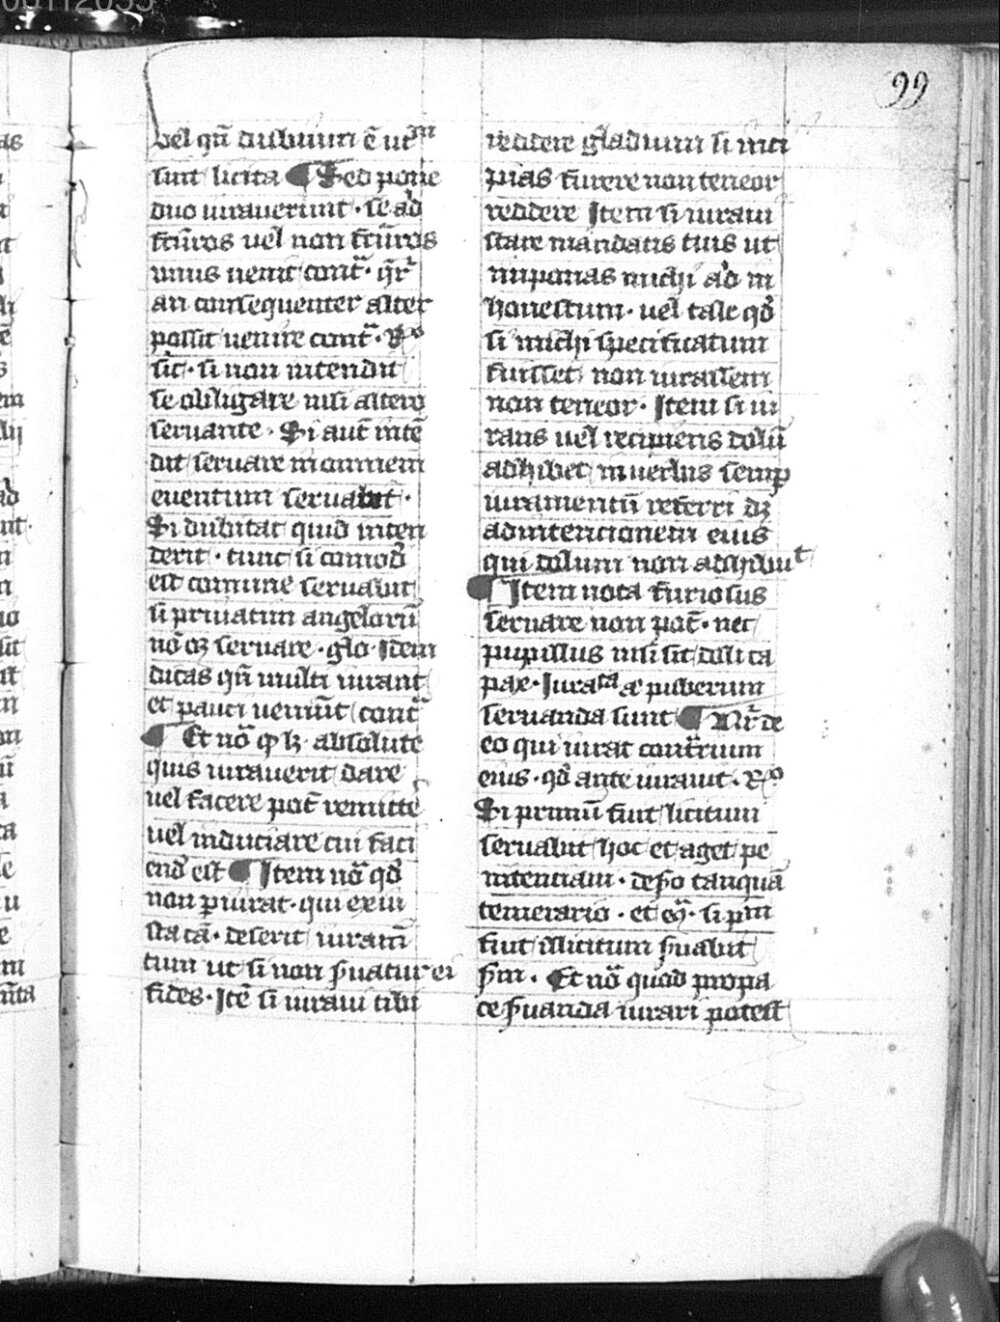 99
vel qn̄ dubium ē utrū
sunt licita ¶ Sed pone
duo iurauerunt · se ad
fctūros uel non fctūros
unus uenit cont̄ · qr̄
an consequenter alter
possit uenire cont̄ · Ro
sic · si non intendit
se obligare nisi altero
seruante · Si aut̄ intē
dit seruare in omnem
euentum seruabit ·
Si dubitat quid inten
derit · tunc si comod̄
est comune seruabit
si priuatim angelorū
nō oꝫ seruare · glo · Idem
dicas qn̄ multi iurant
et pauci ueniūt cont̄
¶ Et nō ꝙ lꝫ absolute
quis iurauerit dare
uel facere pot̄ remitte
uel induciare cui faci
end̄ est ¶ Item nō qd̄
non piurat · qui ex iu
sta cā · deserit iuram̄
tum ut si non ẜuatur ei
fides · Itē si iuraui tibi
reddere gladium si inci
pias furere non teneor
reddere Item si iuraui
stare mandatis tuis ut
imponas michi ad in
honestum · uel tale qd̄
si michi specificatum
fuisset non iurassem
non teneor · Item si iu
rans uel recipiens dolū
adhibet in uerbis semꝑ
iuramentū referri dꝫ
ad intencionem eius
qui dolum non adhibuit
¶ Item nota furiosus
seruare non pot̄ · nec
pupillus nisi sit doli ca
pax · Iurata puberum
seruanda sunt ¶ Qr̄ de
eo qui iurat contr̄rium
eius · qd̄ ante iurauit · Ro
Si primū fuit licitum
seruabit hoc et aget pe
nitenciam · de ẜo tanquā
temerario · et si pm
fuit illicitum ẜuabit
ẜm · Et nō quod pro pa
ce ẜuanda iurari potest